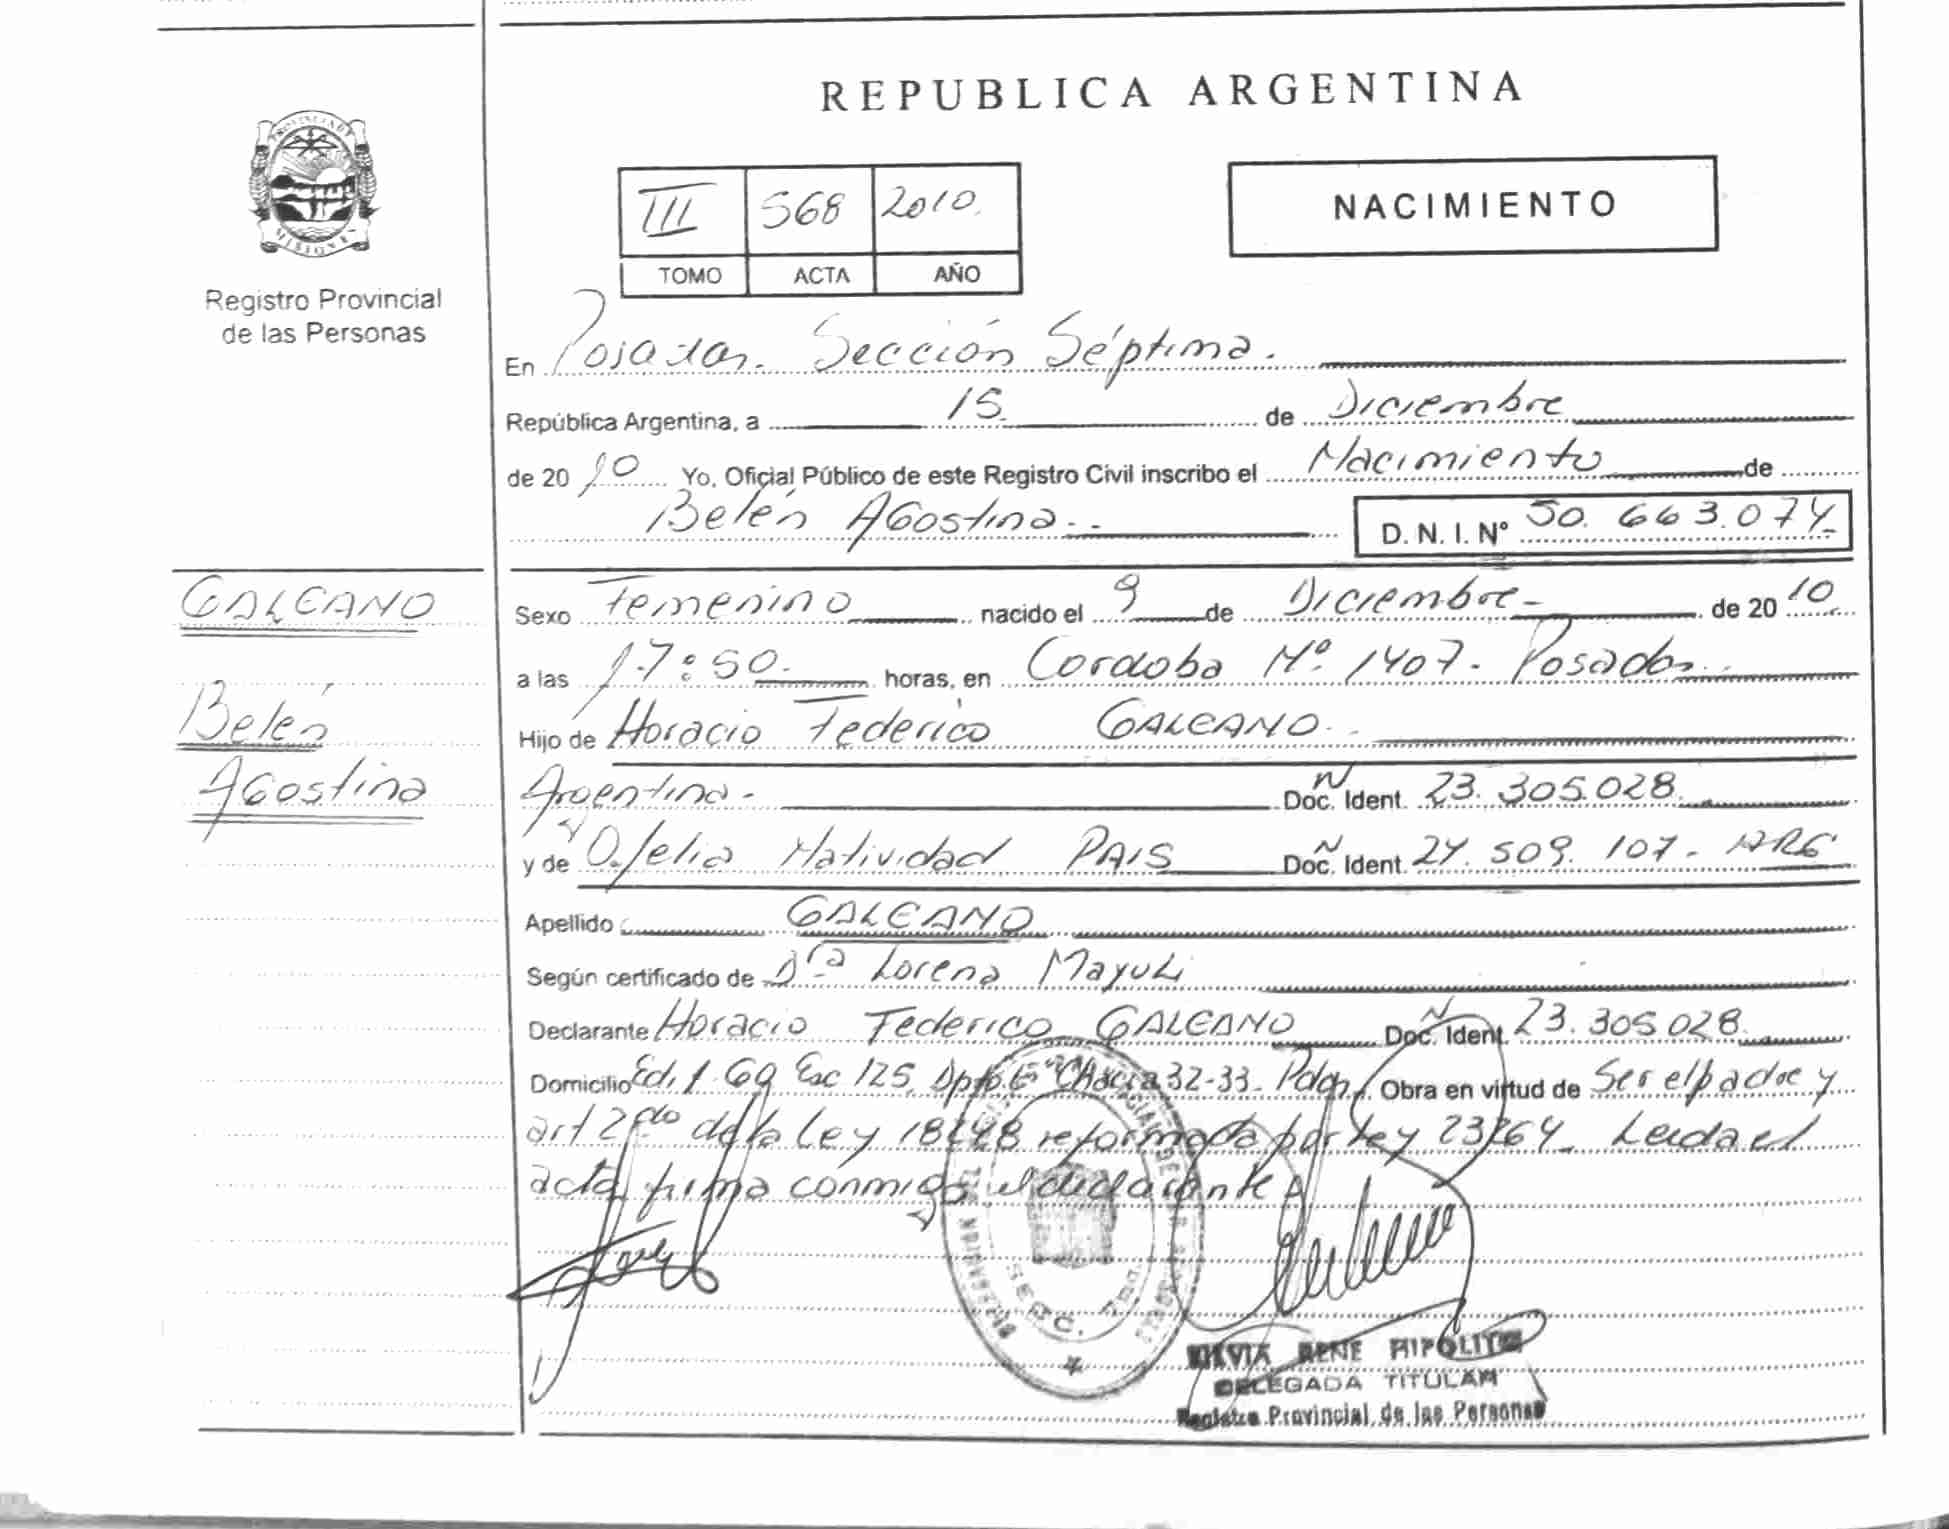 REPUBLICA ARGENTINA
PROVINCIA DE
MISIONES
Registro Provincial
de las Personas
III 568 2010.
TOMO ACTA AÑO
NACIMIENTO
En Posadas. Sección Séptima.
República Argentina, a 15 de Diciembre
de 2010 Yo, Oficial Público de este Registro Civil inscribo el Nacimiento de
Belén Agostina.- D. N. I. Nº 50.663.074
GALEANO
Belén
Agostina
Sexo Femenino nacido el 9 de Diciembre- de 2010
a las 17:50. horas, en Cordoba Nº 1407. Posadas.
Hijo de Horacio Federico GALEANO.
Argentina.- Doc. Ident. 23.305.028.
y de Ofelia Natividad PAIS Doc. Ident. 24.509.107- ARG
Apellido GALEANO
Según certificado de Dra Lorena
Declarante Horacio Federico GALEANO Doc. Ident. 23.305.028.
Domicilio Ed. 1 Esc 125, Dpto. Chacra 32-33- Obra en virtud de Ser el padre y
art 2do de la Ley 18248 reformada por Ley 23264- Leida el
acta firma conmigo el declarante
SILVIA RENE HIPOLITO
DELEGADA TITULAR
Registro Provincial de las Personas